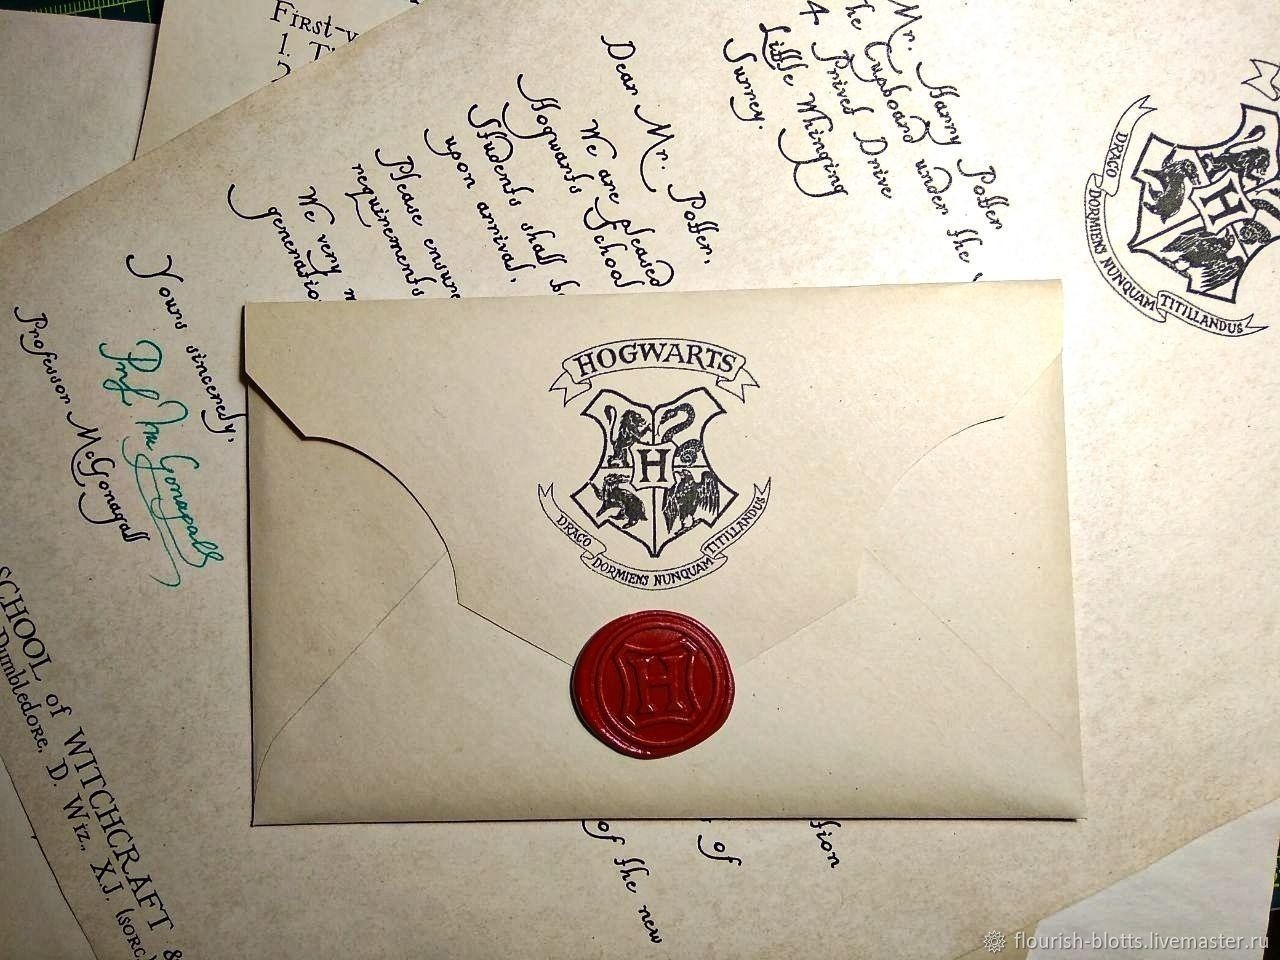 First-y
1. T
Mr. Harry Potter
The Cupboard under the
4 Privet Drive
Little Whinging
Surrey.
Dear Mr. Potter,
We are pleased
Hogwarts School
Students shall b
upon arrival,
Please ensure
requirements
We very m
generatio
Yours sincerely,
Prof McGonagall
Professor McGonagall
DRACO DORMIENS NUNQUAM TITILLANDUS
H
HOGWARTS
H
DRACO DORMIENS NUNQUAM TITILLANDUS
H
SCHOOL of WITCHCRAFT &
Dumbledore, D. Wiz., X.J. (sorc.
of the new
of
tion
flourish-blotts.livemaster.ru